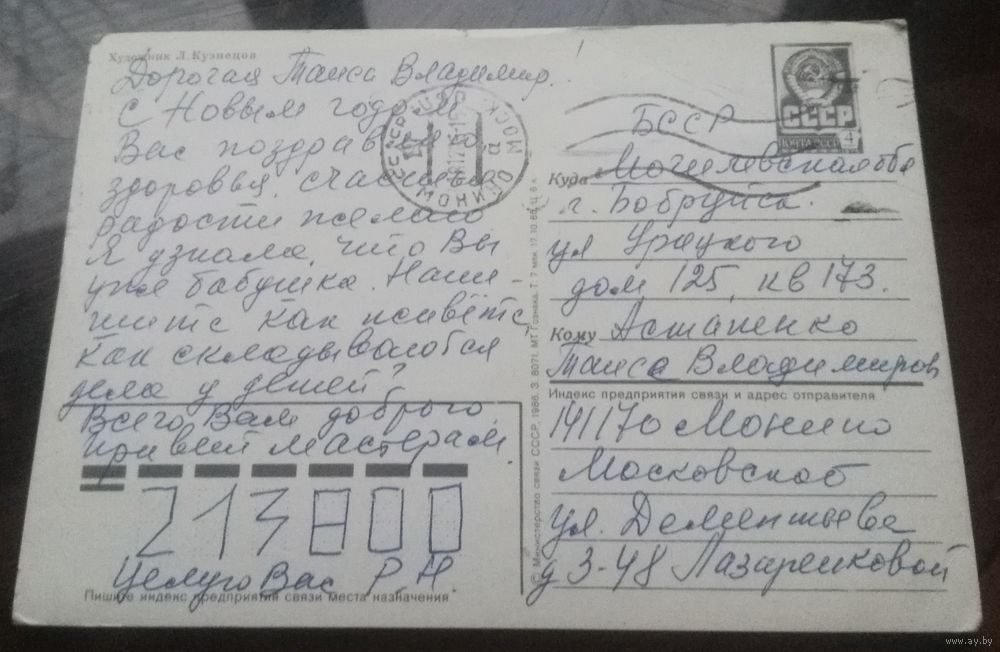 Художник Л. Кузнецов
Дорогая Таиса Владимир.
С Новым годом
Вас поздравляю,
здоровья, счастья
радости желаю
Я узнала, что Вы
уже бабушка. Напи-
шите как живёте,
как складываются
дела у детей?
Всего Вам доброго,
привет мастерам.
213800
Целую Вас Р Н
Пишите индекс предприятия связи места назначения
МОНИНО МОСК.
© Министерство связи СССР, 1986. З. 8071. МТ Гознака. 17.10.86. Ц. 6 к.
СССР
ПОЧТА СССР
4
БССР
Куда Могилевская обл
г. Бобруйск
ул Урицкого
дом 125, кв 173.
Кому Астапенко
Таиса Владимиров
Индекс предприятия связи и адрес отправителя
141170 Монино
Московской
ул. Дементьева
д 3-48 Лазаренковой
www.ay.by